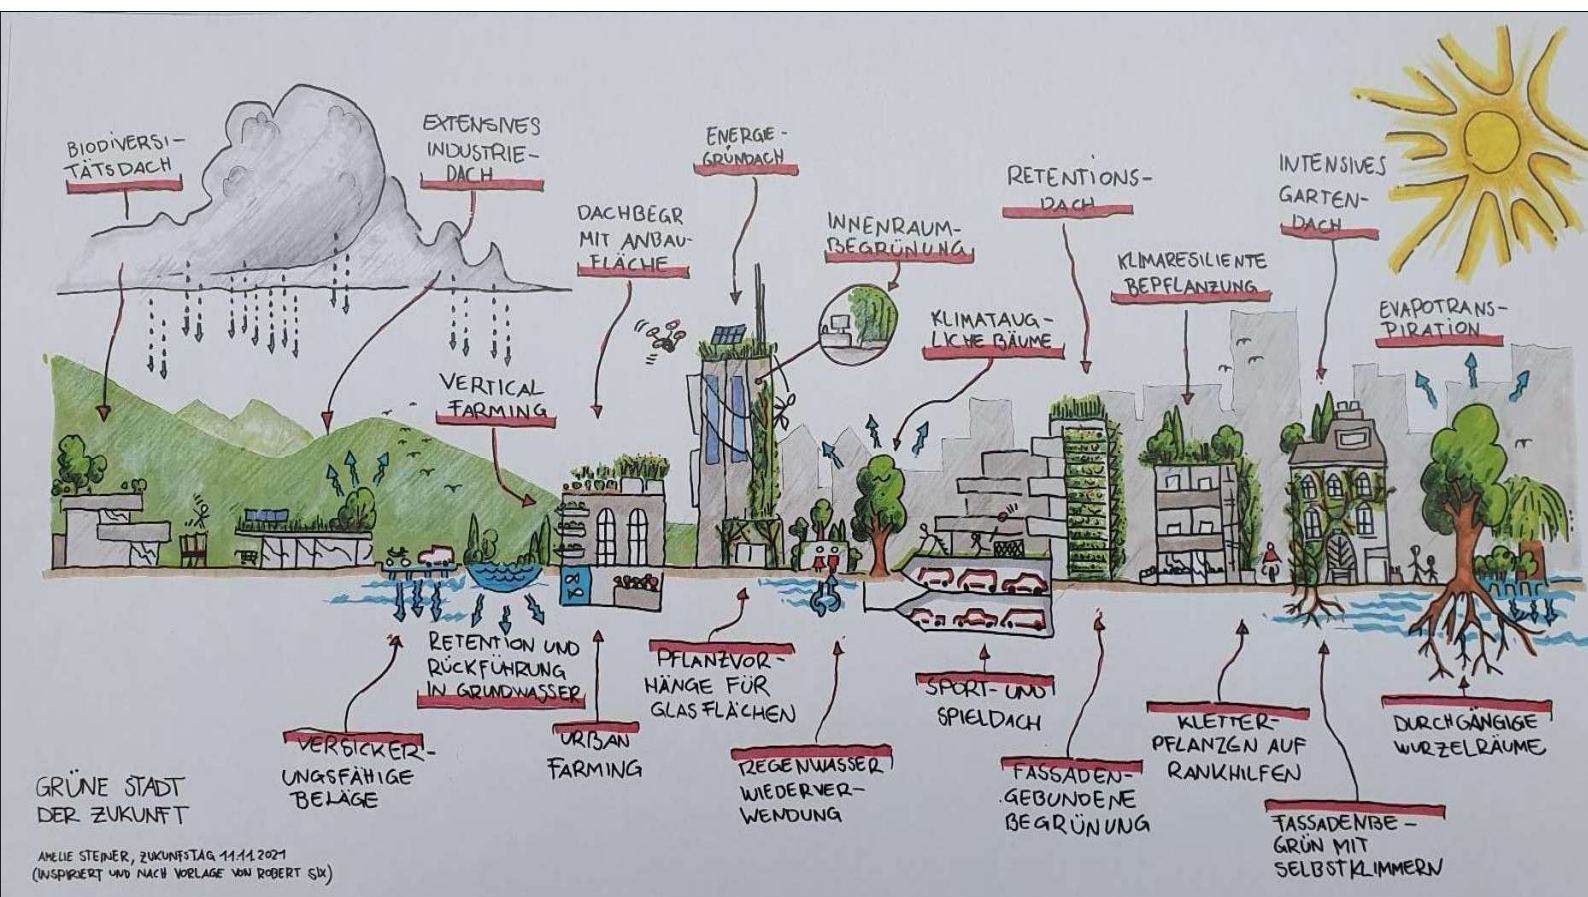 BIODIVERSI-
TÄTSDACH
EXTENSIVES
INDUSTRIE-
DACH
DACHBEGR
MIT ANBAU-
FLÄCHE
ENERGIE-
GRÜNDACH
INNENRAUM-
BEGRÜNUNG
KLIMATAUG-
LICHE BÄUME
RETENTIONS-
DACH
KLIMARESILIENTE
BEPFLANZUNG
INTENSIVES
GARTEN-
DACH
EVAPOTRANS-
PIRATION
VERTICAL
FARMING
VERSICKER-
UNGSFÄHIGE
BELÄGE
RETENTION UND
RÜCKFÜHRUNG
IN GRUNDWASSER
URBAN
FARMING
PFLANZVOR-
HÄNGE FÜR
GLASFLÄCHEN
REGENWASSER
WIEDERVER-
WENDUNG
SPORT- UND
SPIELDACH
FASSADEN-
GEBUNDENE
BEGRÜNUNG
KLETTER-
PFLANZEN AUF
RANKHILFEN
FASSADENBE-
GRÜN MIT
SELBSTKLIMMERN
DURCHGÄNGIGE
WURZELRÄUME
GRÜNE STADT
DER ZUKUNFT
AMELIE STEINER, ZUKUNFSTAG 11.11.2021
(INSPIRIERT UND NACH VORLAGE VON ROBERT SIX)